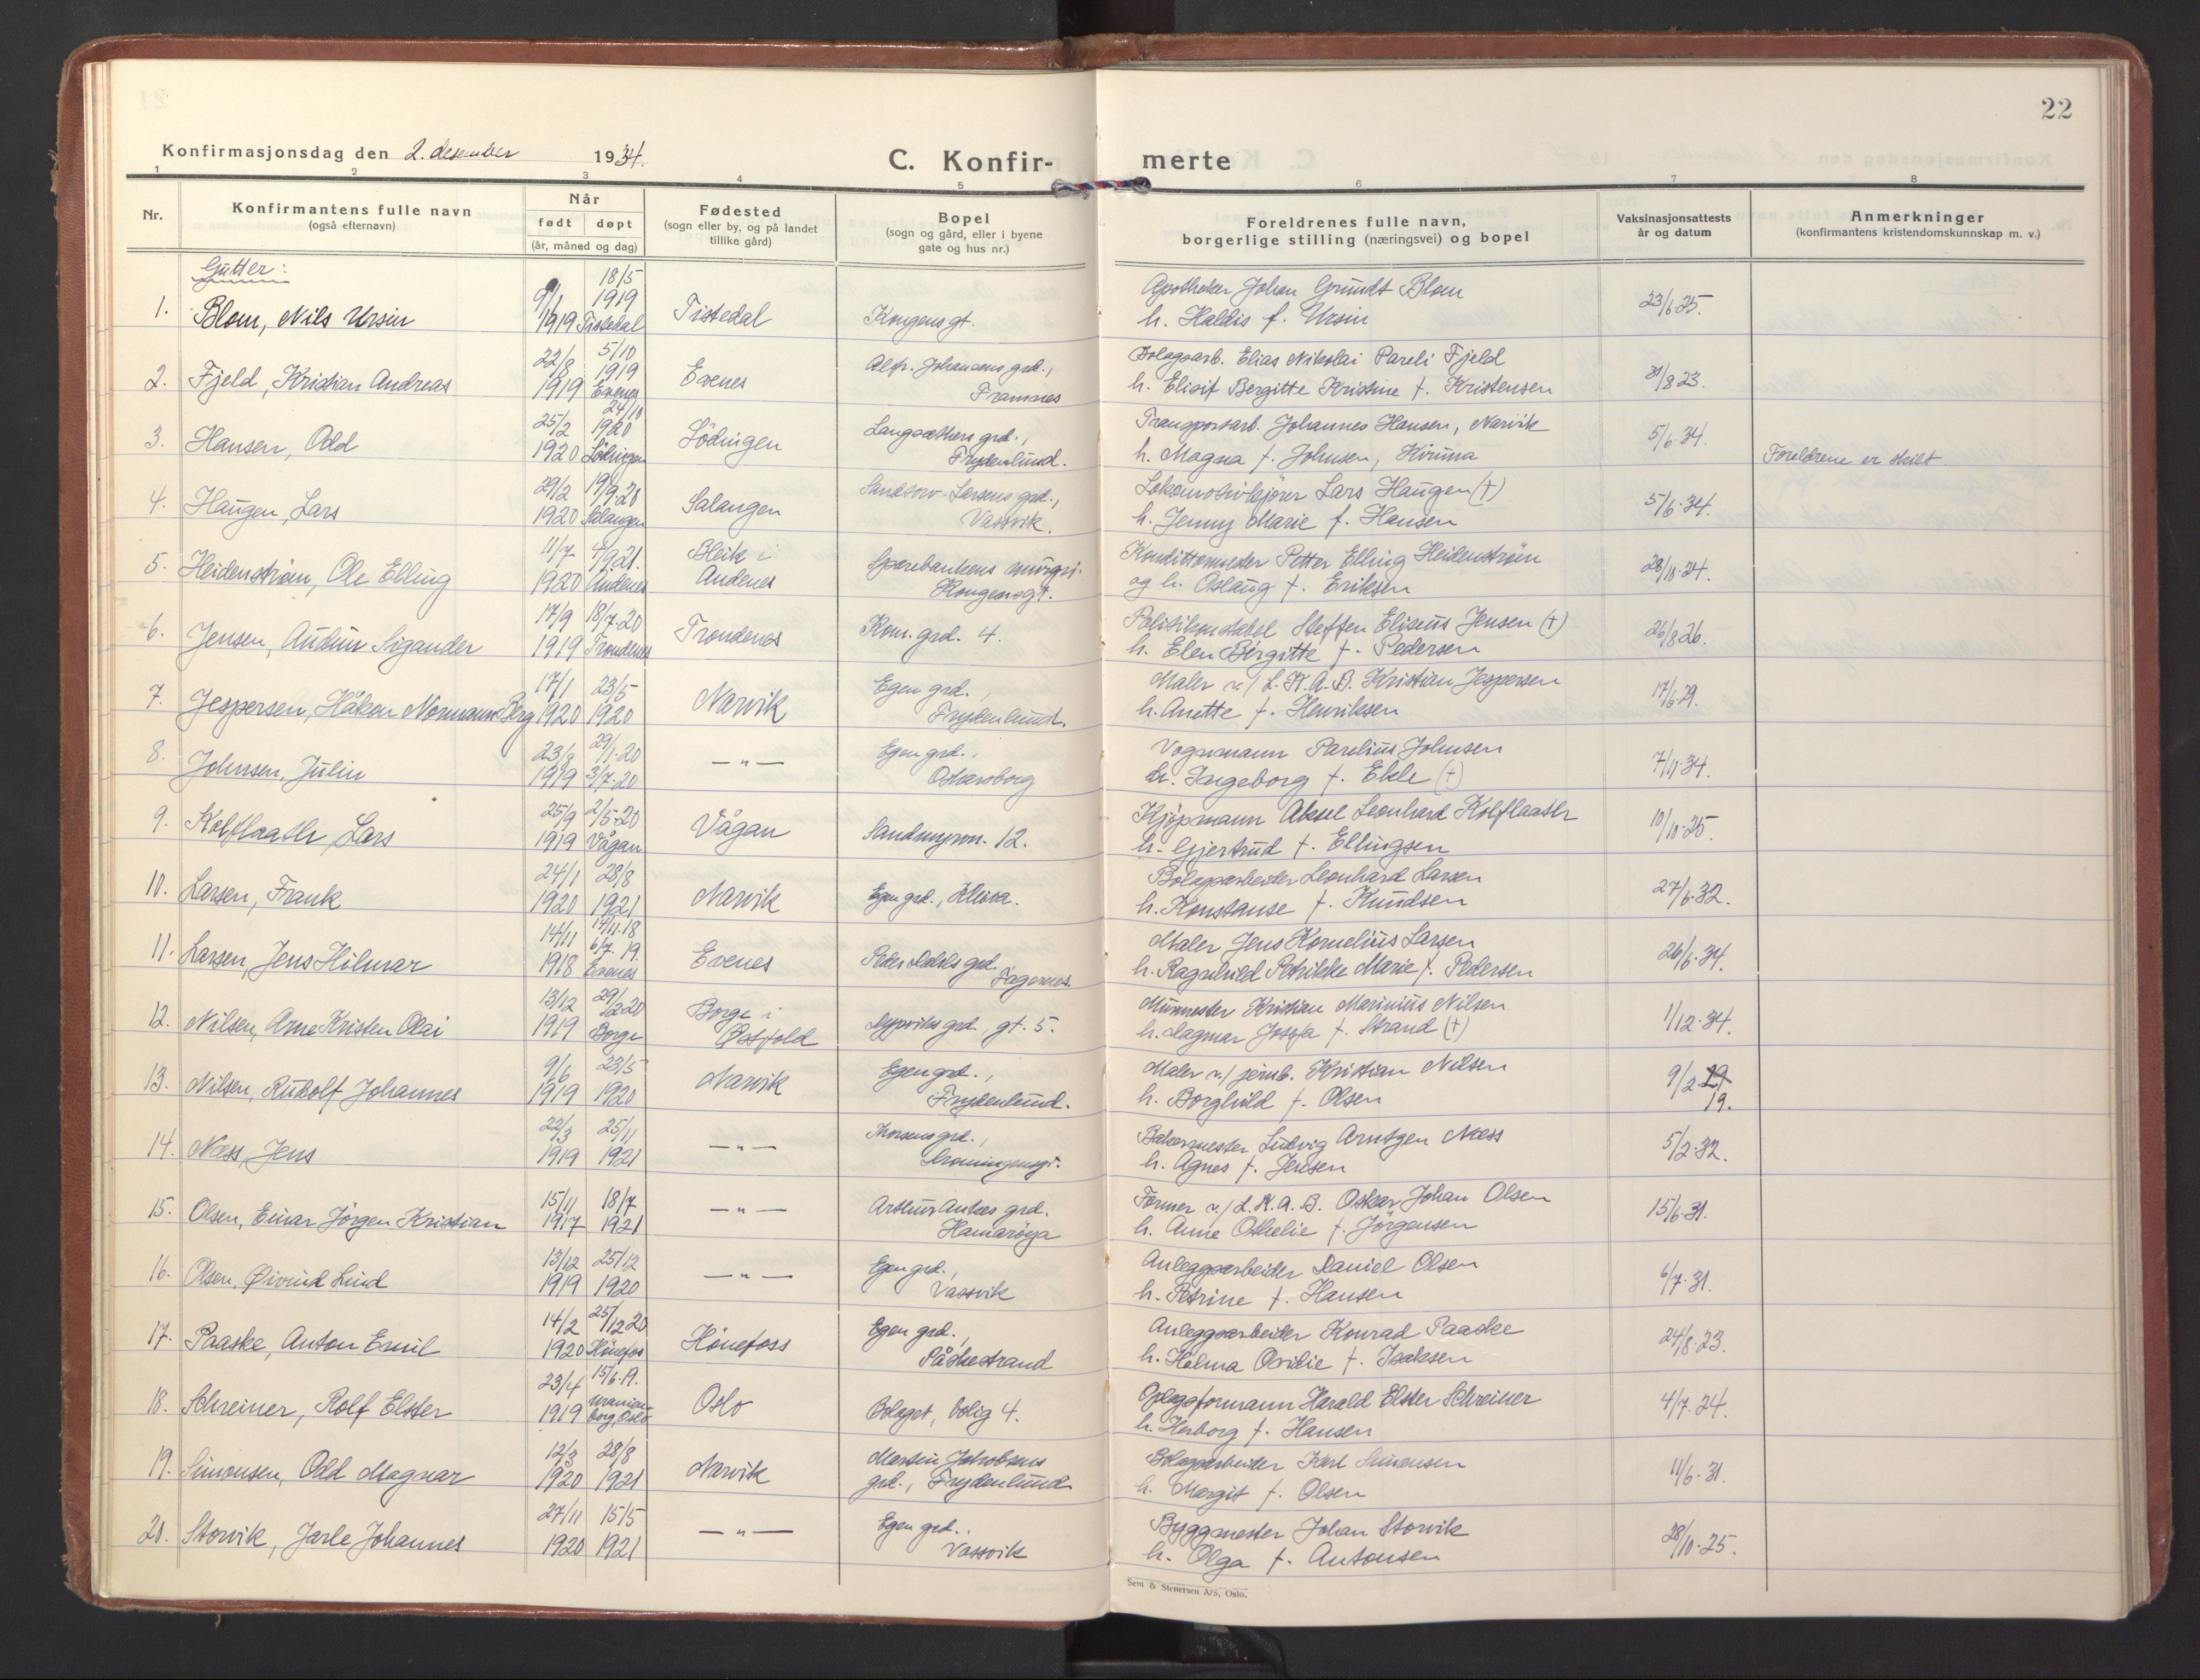 22
Konfirmasjonsdag den 2. desember 1934.
C. Konfir- merte
1 2 3 4 5 6 7 8
Nr.
Konfirmantens fulle navn
(også efternavn)
Når
født døpt
(år, måned og dag)
Fødested
(sogn eller by, og på landet
tillike gård)
Bopel
(sogn og gård, eller i byene
gate og hus nr.)
Foreldrenes fulle navn,
borgerlige stilling (næringsvei) og bopel
Vaksinasjonsattests
år og datum
Anmerkninger
(konfirmantens kristendomskunnskap m. v.)
Gutter:
18/5
9/1 1919 Apotheker Johan Grundt Blom
1. Blom, Nils Ursin 1919 Tistedal Tistedal Kongensgt. h. Haldis f. Ursin 23/6 25.
22/8 5/10 1919 Alfr. Johansens grd., Bolagsarb. Elias Nikolai Pareli Fjeld
2. Fjeld, Kristian Andreas 1919 Evenes Evenes Framnes h. Elisif Bergitte Kristine f. Kristensen 31/8 23.
25/2 24/10 1920 Langsæthers grd., Transportarb. Johannes Hansen, Narvik
3. Hansen, Odd 1920 Lödingen Lödingen Frydenlund. h. Magna f. Johnsen, Kiruna 5/6 34. Foreldrene er skilt
29/2 19/9 20 Lokomotivkjører Lars Haugen (†)
4. Haugen, Lars 1920 Salangen Salangen Vassvik. h. Jenny Marie f. Hansen 5/6 34.
11/7 4/9 21. Bleik i Sparebankens Petter Elling Heidenstrøm
5. Heidenstrøm, Ole Elling 1920 Andenes Andenes Kongensgt. og h. Oslaug f. Eriksen 28/10 24.
17/9 18/7 20 Politikonstabel Steffen Eliseus Jensen (†)
6. Jensen, Audun Sigander 1919 Trondenes Trondenes Kom. grd. 4. h. Elen Birgitte f. Pedersen 26/8 26.
17/1 23/5 Egen grd., Maler v./ L.K.A.B. Kristian Jespersen
7. Jespersen, Håkon Normann Berg 1920 1920 Narvik Frydenlund. h. Anette f. Henriksen 17/6 29.
23/8 29/1 20 Egen grd., Vognmann Parelius Johnsen
8. Johnsen, Julin 1919 3/7 20 — " — Oskarsborg h. Ingeborg f. Ekle (†) 7/11 34.
25/9 2/5 20 Kjøpmann Aksel Leonhard Kolflaath
9. Kolflaath, Lars 1919 Vågan Vågan 12. h. Gjertrud f. Ellingsen 10/10 25.
24/1 28/8 Bolagsarbeider Leonhard Larsen
10. Larsen, Frank 1920 1921 Narvik Egen grd., h. Konstanse f. Knudsen 27/6 32.
14/11 14/11 18 6/7 19. Maler Jens Kornelius Larsen
11. Larsen, Jens Hilmar 1918 Evenes Evenes Fagernes. h. Ragnhild Petrikke Marie f. Pedersen 26/6 34.
13/12 29/2 20 Borge i Murmester Kristian Marinius Nilsen
12. Nilsen, Arne Kristen Olai 1919 Borge Østfold grd., gt. 5. h. Dagmar Josefa f. Strand (†) 1/12 34.
9/6 23/5 Egen grd., Maler v./ jernb. Kristian Nilsen
13. Nilsen, Rudolf Johannes 1919 1920 Narvik Frydenlund. h. Borghild f. Olsen 9/2 29 19.
22/3 25/11 Thorsens grd., Bakermester Ludvig Arntzen Næss
14. Næss, Jens 1919 1921 — " — Dronningensgt. h. Agnes f. Jensen 5/2 32.
15/11 18/7 Arthur grd. Former v./ L.K.A.B. Oskar Johan Olsen
15. Olsen, Einar Jörgen Kristian 1917 1921 — " — Hamarøya h. Anne Othelie f. Jörgensen 15/6 31.
13/12 25/12 Egen grd., Anleggsarbeider Daniel Olsen
16. Olsen, Øivind Lind 1919 1920 — " — Vassvik h. Petrine f. Hansen 6/7 31.
14/2 25/12 20 Egen grd., Anleggsarbeider Konrad Paaske
17. Paaske, Anton Emil 1920 Hönefos Hönefoss Påskestrand h. Helma Ovidie f. Isaksen 24/8 23.
23/4 15/6 19. Oplagsformann Harald Elster Schreiner
18. Schreiner, Rolf Elster 1919 Uranienborg, Oslo Oslo Bolaget, bolig 4. h. Herborg f. Hansen 4/7 24.
12/3 28/8 Martin Jakobsens Bolagsarbeider Karl Simonsen
19. Simonsen, Odd Magnar 1920 1921 Narvik grd., Frydenlund h. Margit f. Olsen 11/6 31.
27/11 15/5 Egen grd., Byggmester Johan Storvik
20. Storvik, Jarle Johannes 1920 1921 — " — Vassvik h. Olga f. Antonsen 28/10 25.
Sem & Stenersen A/S, Oslo.